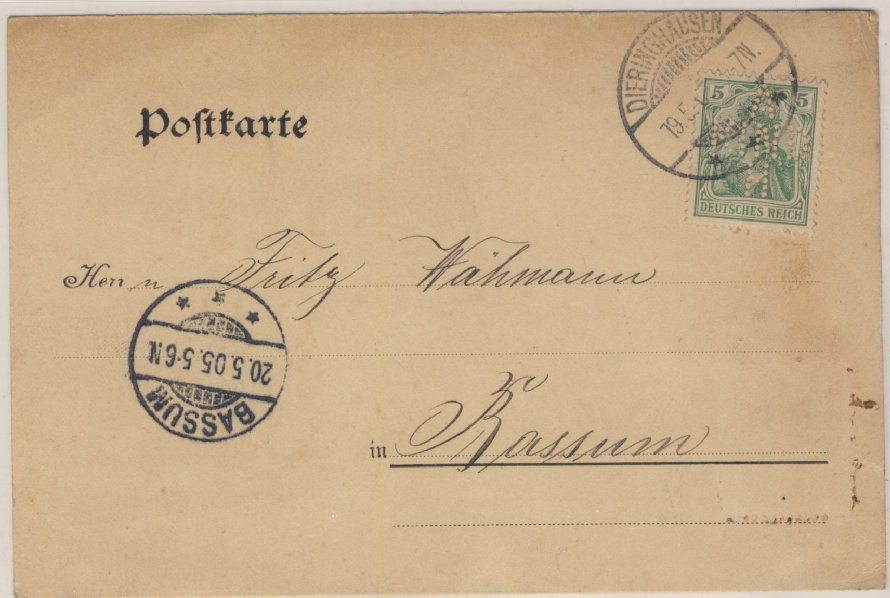 DIERINGHAUSEN
19.5. 7N.
5 5
DEUTSCHES REICH
Poſtkarte
Herrn Fritz Wähmann
20.5.05.5-6N
BASSUM
in Bassum